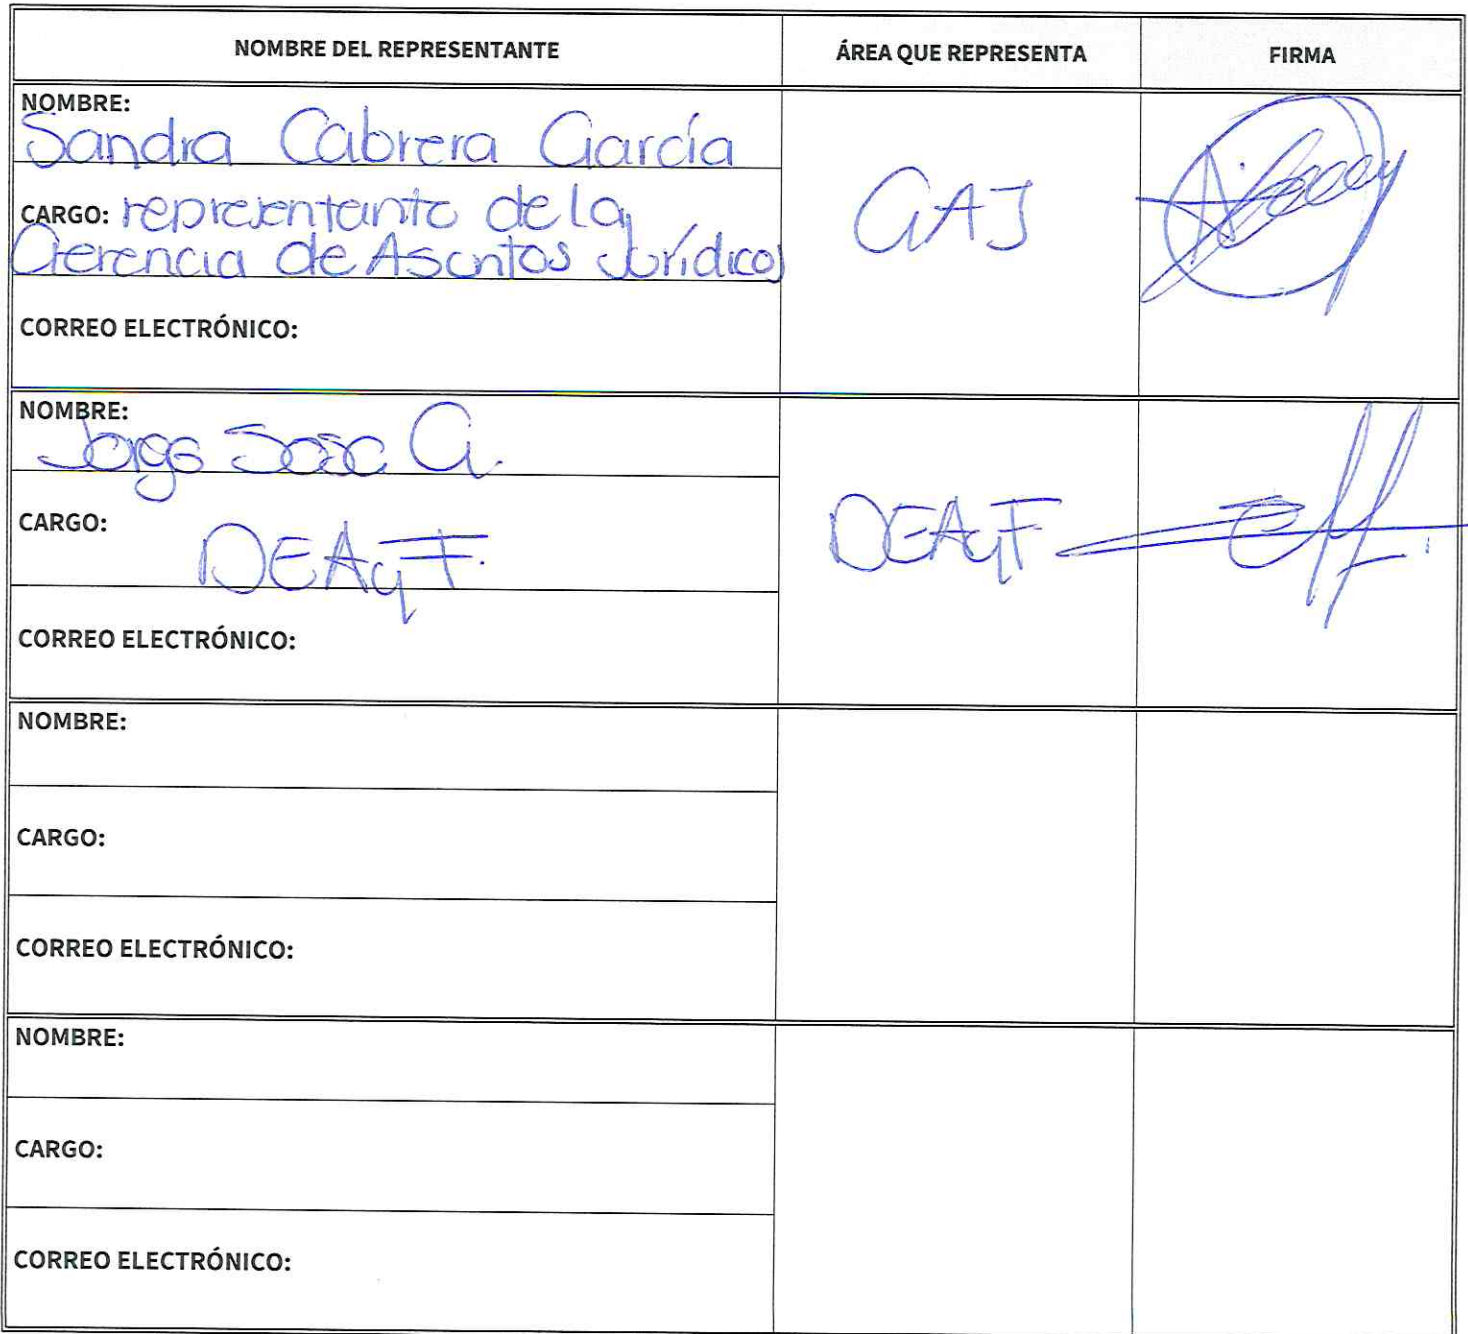 NOMBRE DEL REPRESENTANTE ÁREA QUE REPRESENTA FIRMA
NOMBRE:
Sandra Cabrera García
CARGO: representante de la
Gerencia de Asuntos Jurídicos
GAJ
CORREO ELECTRÓNICO:
NOMBRE:
Jorge Sosa G.
CARGO:
DEAyF.
DEAyF
CORREO ELECTRÓNICO:
NOMBRE:
CARGO:
CORREO ELECTRÓNICO:
NOMBRE:
CARGO:
CORREO ELECTRÓNICO: